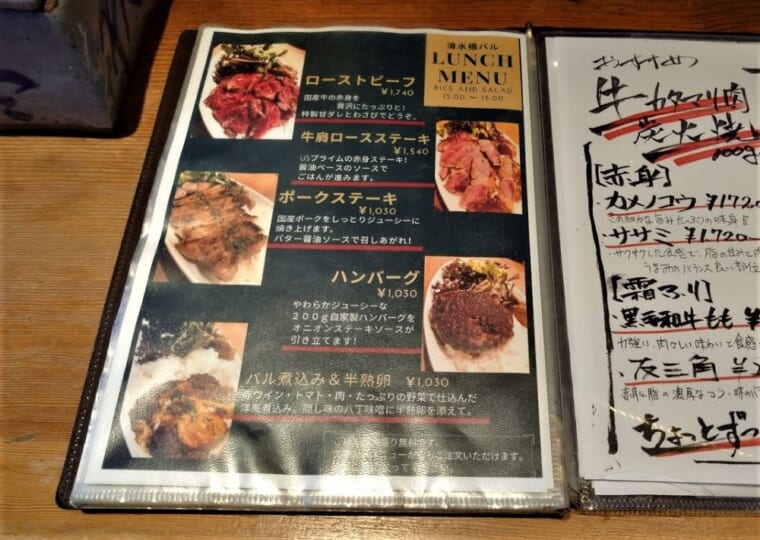 清水橋バル
LUNCH
MENU
RICE AND SALAD
12:00 ～ 15:00
ローストビーフ
¥1,740
国産牛の赤身を
贅沢にたっぷりと!
特製甘ダレとわさびでどうぞ。
牛肩ロースステーキ
¥1,540
USプライムの赤身ステーキ!
醤油ベースのソースで
ごはんが進みます。
ポークステーキ
¥1,030
国産ポークをしっとりジューシーに
焼き上げます。
バター醤油ソースで召しあがれ!
ハンバーグ
¥1,030
やわらかジューシーな
200g自家製ハンバーグを
オニオンステーキソースが
引き立てます!
バル煮込み&半熟卵 ¥1,030
赤ワイン・トマト・肉・たっぷりの野菜で仕込んだ
洋風煮込み。隠し味の八丁味噌に半熟卵を添えて。
り無料です。
ご注文いただけます。
ってください。
おすすめ
牛カタマリ肉
炭火焼
100g
[赤身]
・カメノコウ ¥172
きめ細かな旨みたっぷりの味
・ササミ ¥1,720
・サクサクした食感で、脂の甘みと
うまみのバランス良い部位
[霜ふり]
・黒毛和牛もも
力強い肉々しい味わいと食感
・友三角
ちょっとずつ